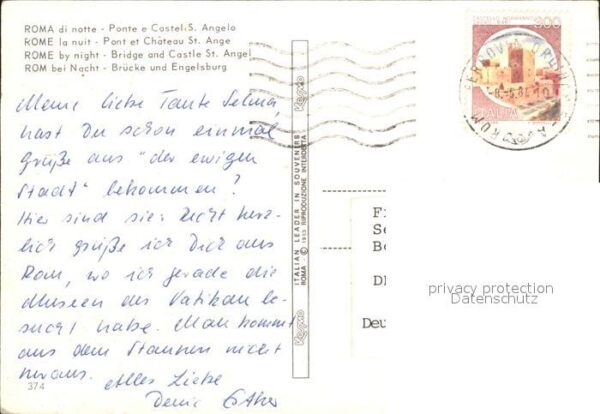 ROMA di notte - Ponte e Castel S. Angelo
ROME la nuit - Pont et Château St. Ange
ROME by night - Bridge and Castle St. Angel
ROM bei Nacht - Brücke und Engelsburg
Meine liebe Tante Selma,
hast Du schon einmal
grüße aus "der ewigen
Stadt" bekommen?
Hier sind sie: Recht herz-
lich grüße ich Dich aus
Rom, wo ich gerade die
Museen des Vatikan be-
sucht habe. Man kommt
aus dem Staunen nicht
heraus. Alles Liebe
Deine Esther
374
Kegmo
ITALIAN LEADER IN SOUVENIRS
ROMA - © 1985 RIPRODUZIONE INTERDETTA
Kegmo
300
ITALIA
F
Se
Bo
D
Deu
privacy protection
Datenschutz